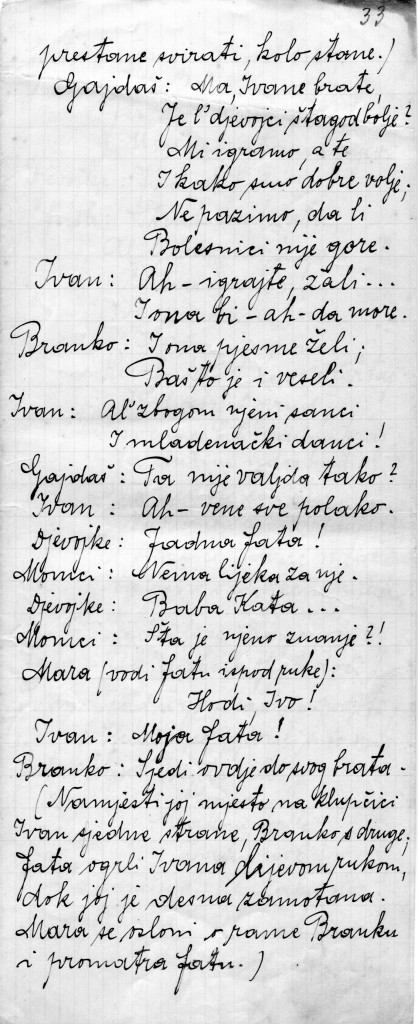 33
prestane svirati, kolo stane.)
Gajdaš: Ma, Ivane brate,
Je l' djevojci štagod bolje?
Mi igramo, a te
I kako smo dobre volje;
Ne pazimo, da li
Bolesnici nije gore.
Ivan: Ah - igrajte, zali...
I ona bi - ah - da more.
Branko: I ona pjesme želi;
Bašto je i veseli.
Ivan: Al' zbogom njeni sanci
I mladenački danci!
Gajdaš: Ta nije valjda tako?
Ivan: Ah - vene sve polako.
Djevojke: Jadna Fata!
Momci: Nema lijeka za nje.
Djevojke: Baba Kata...
Momci: Šta je njeno znanje?!
Mara (vodi Fatu ispod ruke):
Hodi, Ivo!
Ivan: Moja Fata!
Branko: Sjedi ovdje do svog brata.
(Namjesti joj mjesto na klupčici
Ivan s jedne strane, Branko s druge;
Fata ogrli Ivana lijevom rukom,
dok joj je desna zamotana.
Mara se osloni o rame Branku
i promatra Fatu.)